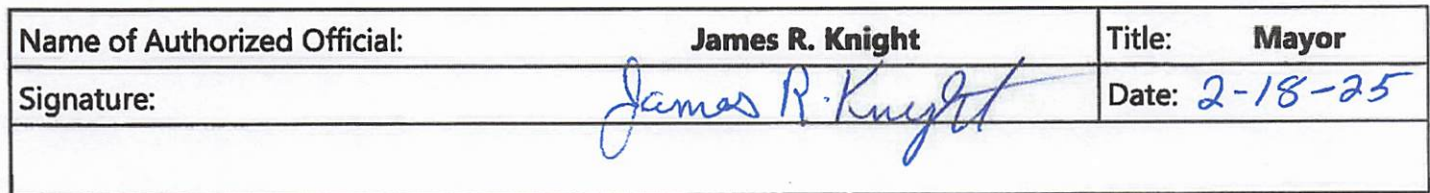 Name of Authorized Official: James R. Knight Title: Mayor
Signature: James R. Knight Date: 2-18-25